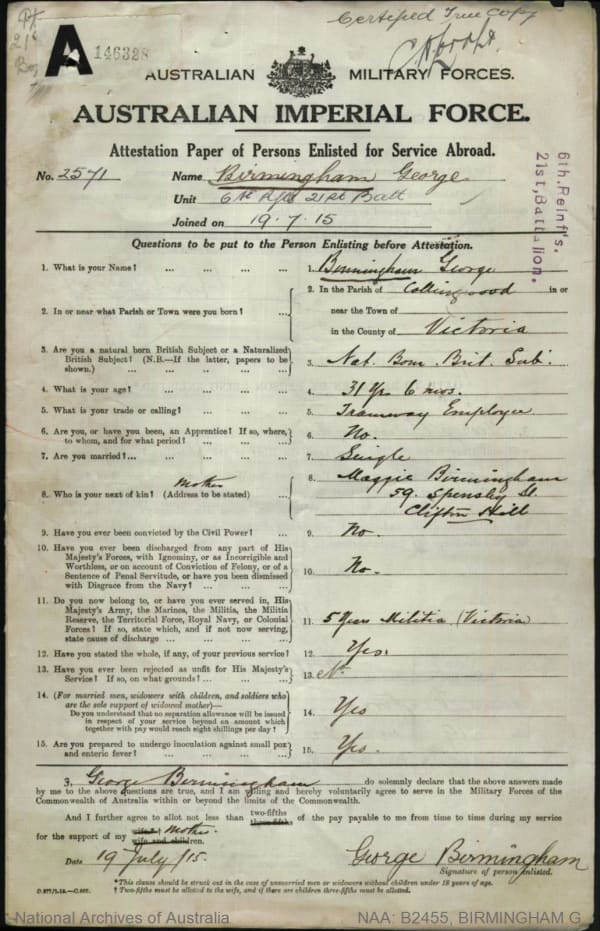 Certified True Copy
A 146328
AUSTRALIAN MILITARY FORCES.
AUSTRALIAN IMPERIAL FORCE.
Attestation Paper of Persons Enlisted for Service Abroad.
No. 2571 Name Birmingham George
Unit 6th Rfts 21st Batt
Joined on 19.7.15
6th.Reinf's.
21st,Battalion.
Questions to be put to the Person Enlisting before Attestation.
1. What is your Name? ... ... ... ... 1. Birmingham George
2. In or near what Parish or Town were you born? ... 2. In the Parish of Collingwood in or
near the Town of
in the County of Victoria
3. Are you a natural born British Subject or a Naturalized
British Subject? (N.B.—If the latter, papers to be
shown.) ... ... ... ... 3. Nat. Born. Brit. Sub.
4. What is your age? ... ... ... ... 4. 31 Yrs 6 mos.
5. What is your trade or calling? ... ... ... 5. Tramway Employee
6. Are you, or have you been, an Apprentice? If so, where,
to whom, and for what period? ... ... ... 6. No.
7. Are you married?... ... ... ... 7. Single
8. Who is your next of kin? (Address to be stated) ... mother 8. Maggie Birmingham
59. Spensley St.
Clifton Hill
9. Have you ever been convicted by the Civil Power? ... 9. No.
10. Have you ever been discharged from any part of His
Majesty's Forces, with Ignominy, or as Incorrigible and
Worthless, or on account of Conviction of Felony, or of a
Sentence of Penal Servitude, or have you been dismissed
with Disgrace from the Navy? ... ... ... 10. No.
11. Do you now belong to, or have you ever served in, His
Majesty's Army, the Marines, the Militia, the Militia
Reserve, the Territorial Force, Royal Navy, or Colonial
Forces? If so, state which, and if not now serving,
state cause of discharge ... ... ... ... 11. 5 Years Militia (Victoria)
12. Have you stated the whole, if any, of your previous service? 12. Yes.
13. Have you ever been rejected as unfit for His Majesty's
Service? If so, on what grounds? ... ... ... 13. No.
14. (For married men, widowers with children, and soldiers who
are the sole support of widowed mother)—
Do you understand that no separation allowance will be issued
in respect of your service beyond an amount which
together with pay would reach eight shillings per day? 14. Yes
15. Are you prepared to undergo inoculation against small pox
and enteric fever? ... ... ... ... 15. Yes.
I, George Birmingham do solemnly declare that the above answers made
by me to the above questions are true, and I am willing and hereby voluntarily agree to serve in the Military Forces of the
Commonwealth of Australia within or beyond the limits of the Commonwealth.
And I further agree to allot not less than two-fifths three-fifths of the pay payable to me from time to time during my service
for the support of my wife mother. wife and children.
Date 19 July/15. George Birmingham
Signature of person enlisted.
* This clause should be struck out in the case of unmarried men or widowers without children under 18 years of age.
† Two-fifths must be allotted to the wife, and if there are children three-fifths must be allotted.
National Archives of Australia NAA: B2455, BIRMINGHAM G